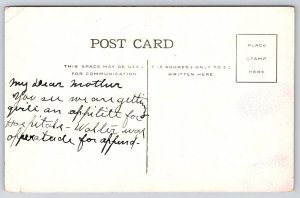 POST CARD
THIS SPACE MAY BE USED
FOR COMMUNICATION
THE ADDRESS ONLY TO BE
WRITTEN HERE
PLACE
STAMP
HERE
My dear Mother
You see we are getting
quite an appitite for
Hospitals - Walter was
operated for append.